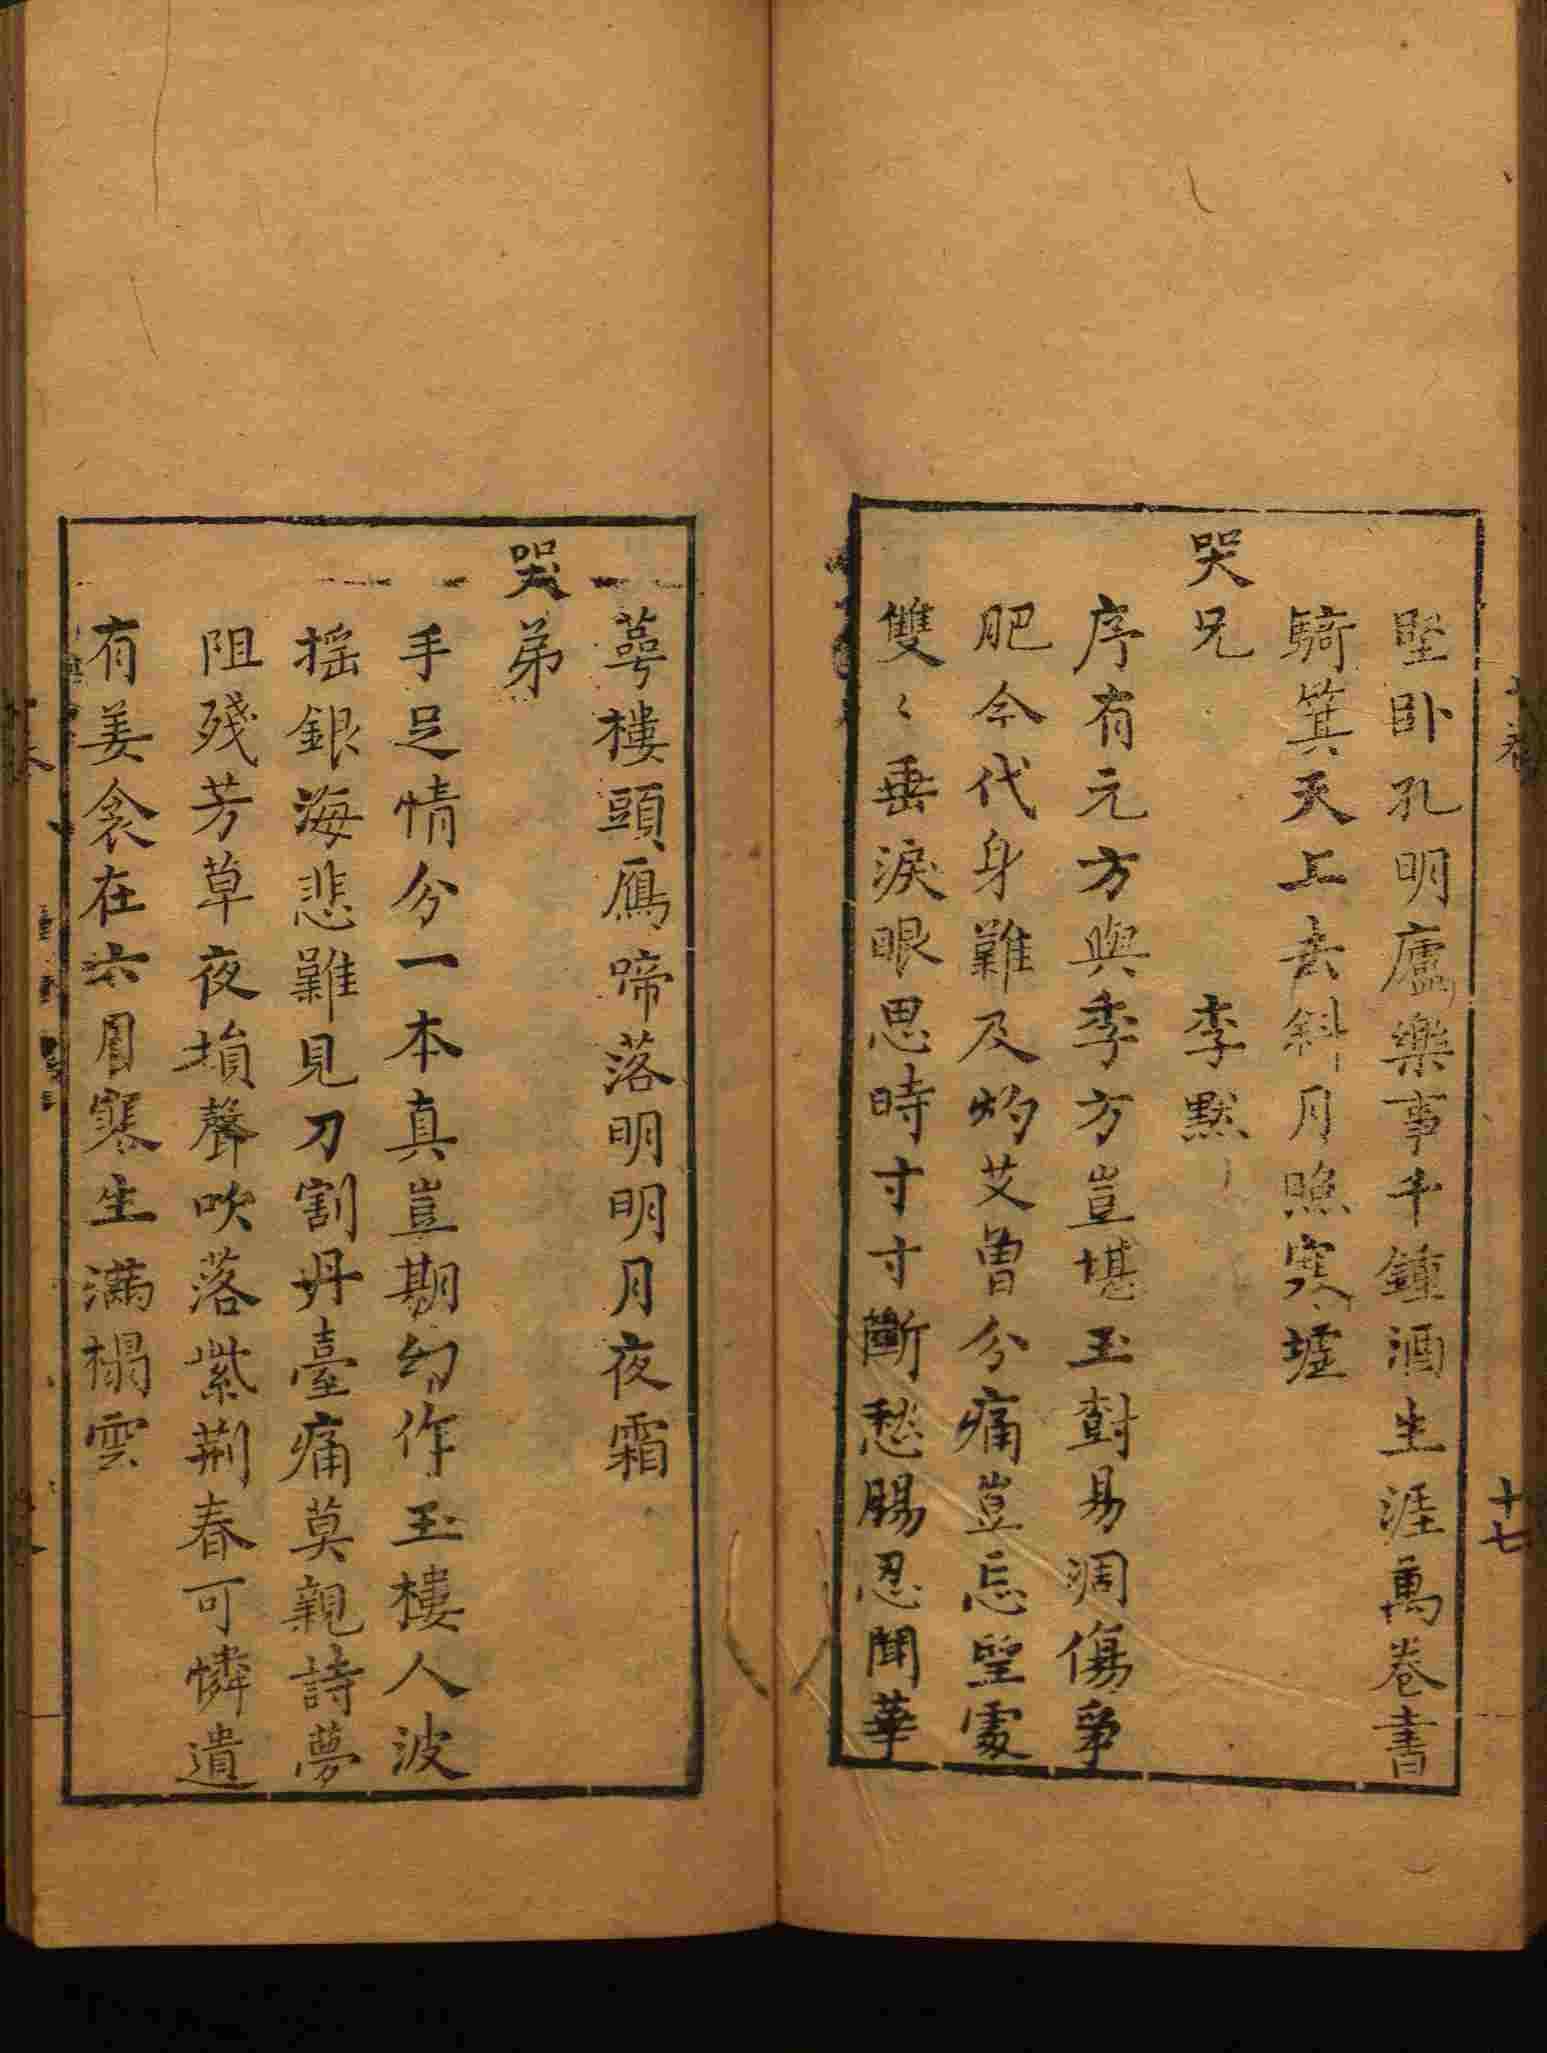 堅卧孔明廬樂事千鍾酒生涯萬卷書
騎箕天上去斜月照寒墟
哭兄　李黙
序有元方與季方豈堪玉樹易凋傷爭
肥今代身難及灼艾曽分痛豈忘望處
雙〻垂淚眼思時寸寸斷愁腸忍聞華
萼樓頭鴈啼落明明月夜霜
哭弟
手足情分一本真豈期幻作玉樓人波
摇銀海悲難見刀割丹臺痛莫親詩夢
阻殘芳草夜塤聲吹落紫荆春可憐遺
有姜衾在六月寒生滿榻雲
十七